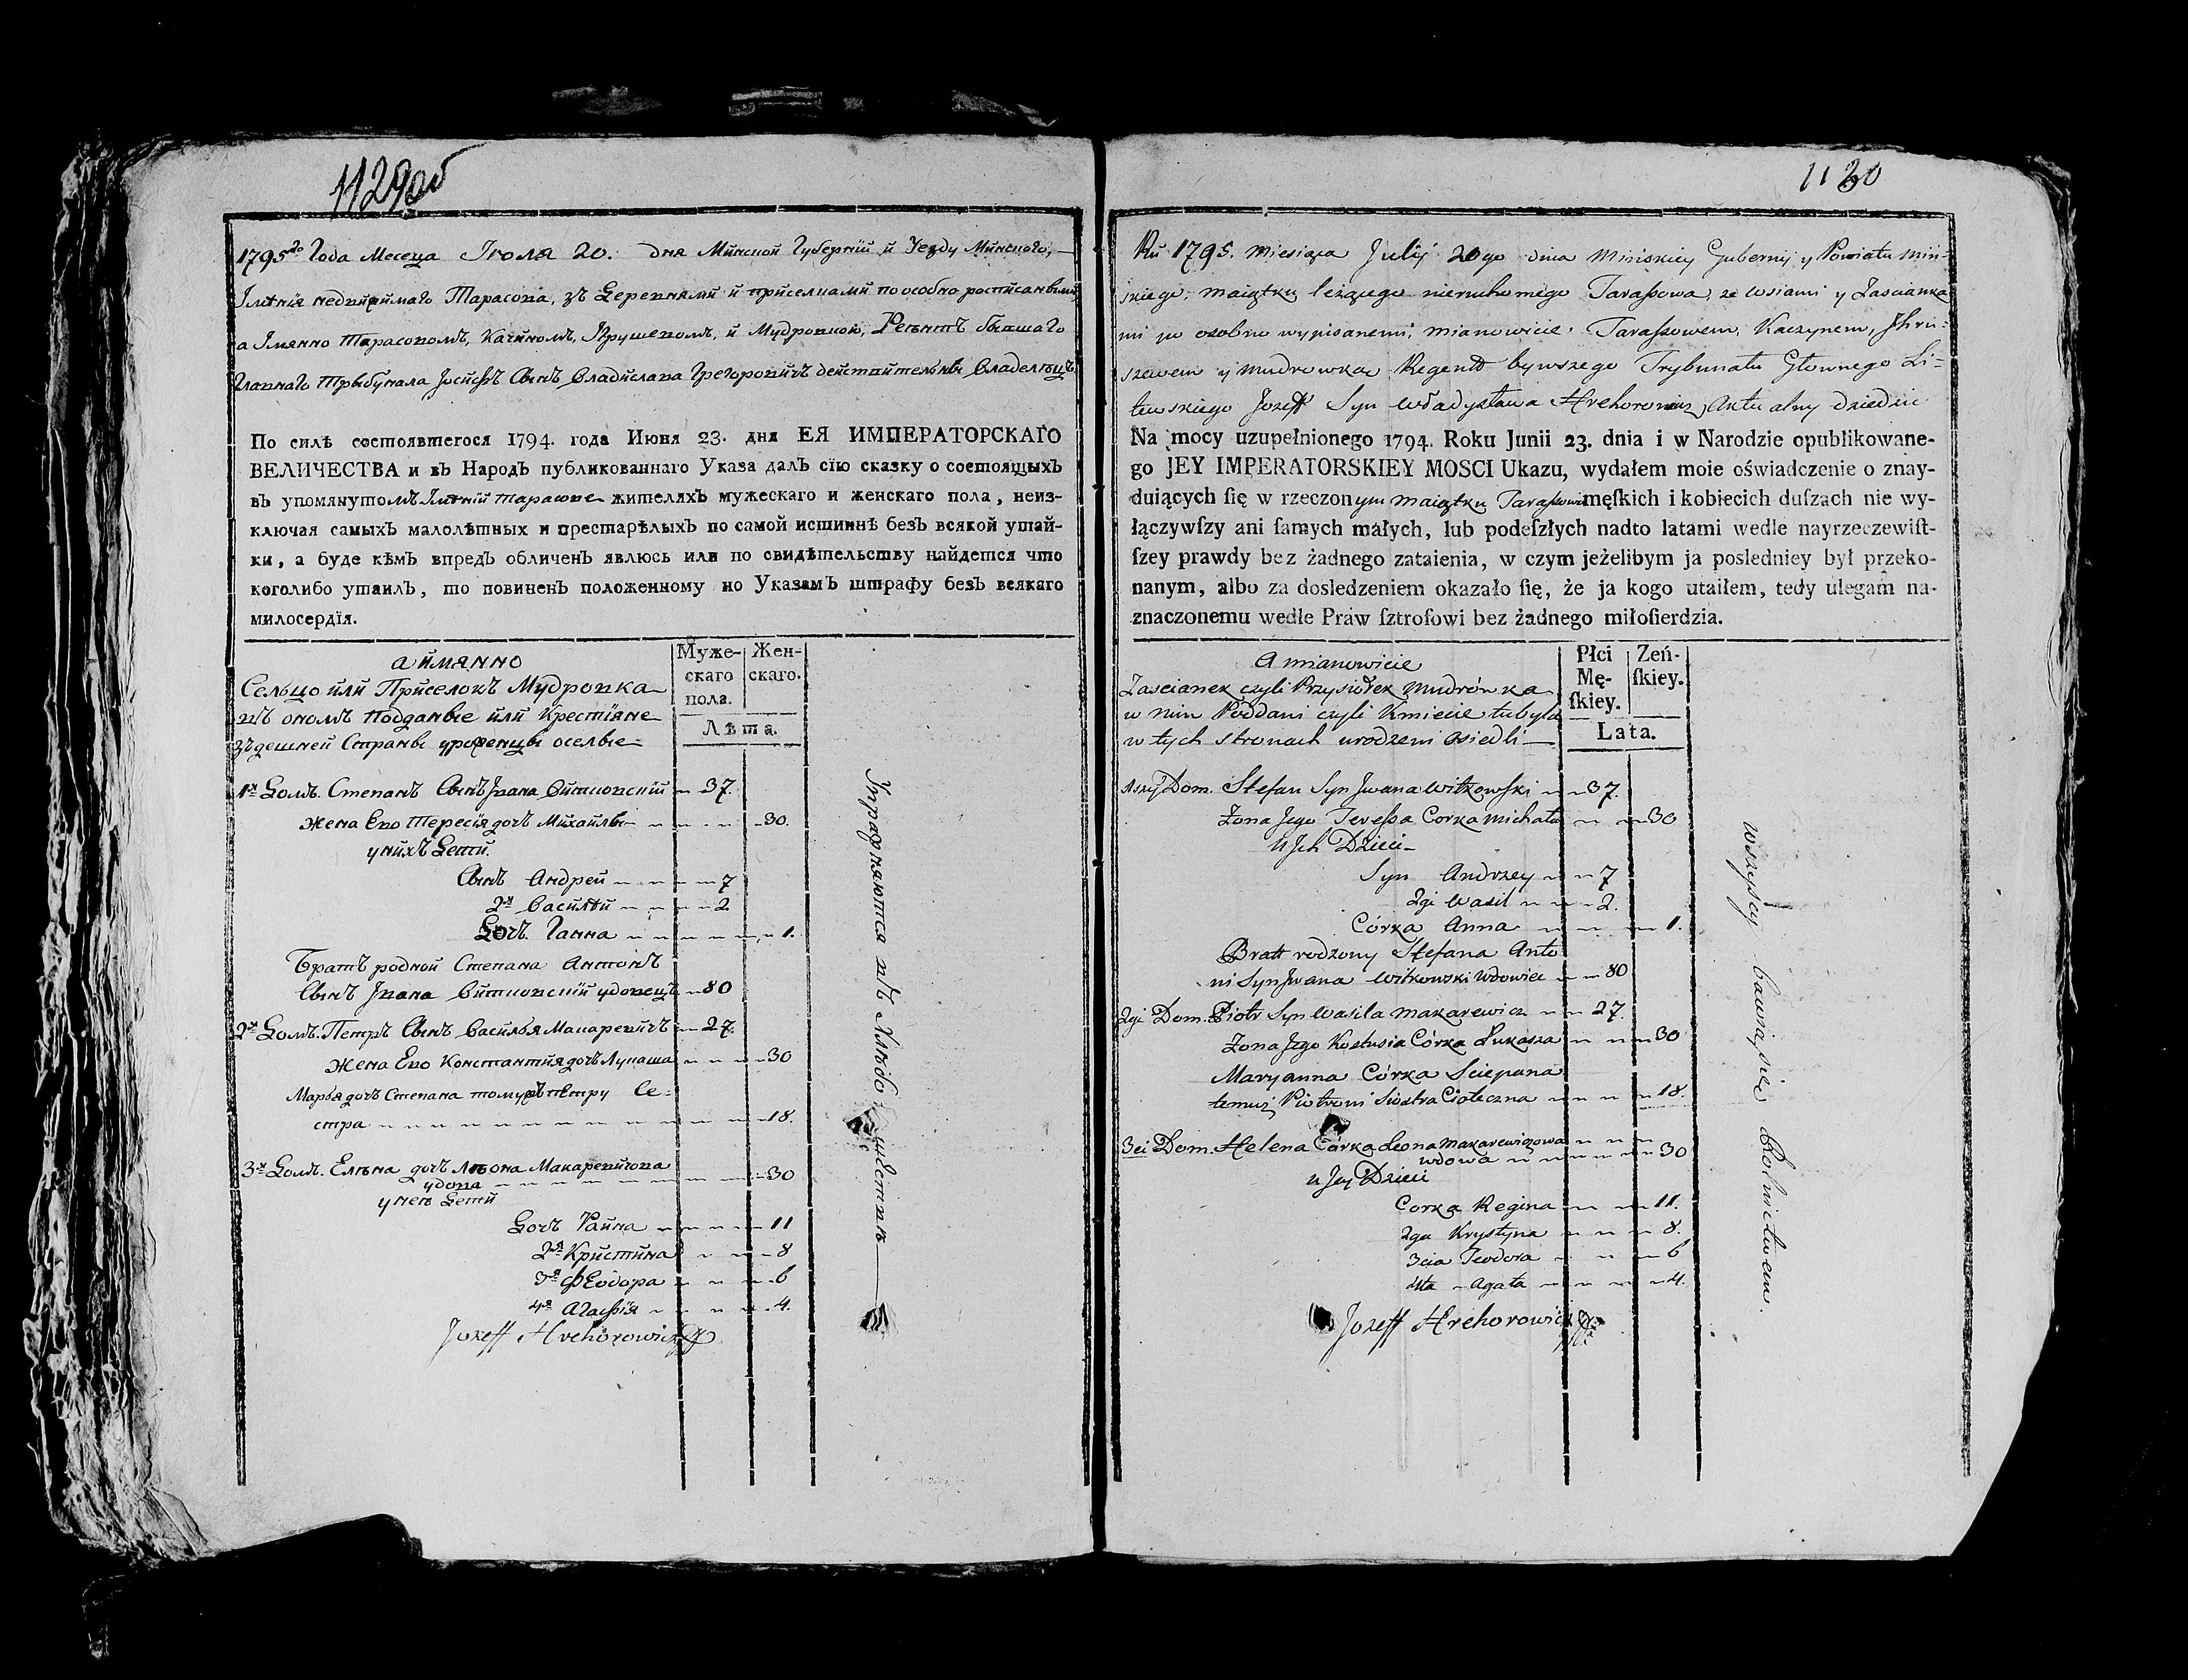 1129об
1795го Года Месеца Июля 20. дня Минской Губернїи и Уезду Минского,
Имѣнїя недвижимаго Тарасова, зъ Деревнями и приселками по особно росписанными
а Имянно Тарасовомъ, Качиномъ, Ярушевомъ, и Мудровкою, Регентъ бывшаго
Главнаго Трыбунала Јосифъ Сынъ Владислава Грегоровичъ действительны Владелецъ
По силѣ состоявшегося 1794. года Июня 23. дня ЕЯ ИМПЕРАТОРСКАГО
ВЕЛИЧЕСТВА и въ Народъ публикованнаго Указа далъ сїю сказку о состоящыхъ
въ упомянутомъ Имѣнїи Тарасове жителяхъ мужескаго и женскаго пола, неиз-
ключая самыхъ малолѣтныхъ и престарѣлыхъ по самой истиннѣ безъ всякой утай-
ки, а буде кѣмъ впредъ обличенъ явлюсь или по свидѣтельству найдется что
коголибо утаилъ, то повиненъ положенному по Указамъ штрафу безъ всякаго
милосердїя.
а имянно
Сельцо или Приселокъ Мудровка
въ ономъ подданые или Крестїяне
здешней Страны уроженцы оселые
Муже-
скаго
пола.
Жен-
скаго.
Лѣта.
1й Домъ. Степанъ Сынъ Ивана Витковский 37.
Жена Ево Тересїя дочъ Михайлы 30.
у нихъ Дети.
Сынъ Андрей 7
2й Василѣй 2
Дочъ. Ганна 1.
Братъ родной Степана Антонъ
Сынъ Ивана Витковскїй удовецъ 80
2й Домъ. Петръ Сынъ Василья Макаревичъ 27.
Жена Ево Константїя дочъ Лукаша 30
Марья дочъ Степана томужъ Петру Се-
стра 18.
3й Домъ. Елѣна дочъ Лѣона Макаревичова
удова 30
у нее Дети
Дочъ Раина 11
2я Кристина 8
3я Феодора 6
4я Агафїя 4.
Jozeff Hrehorowicz
Упражняются въ Хлѣбопашествѣ
1130
Ru 1795. Miesiąca Julij 20go dnia Minskiey Gubernij y Powiatu Miń-
skiego, maiątku leżącego nieruchomego Taraszowa, ze wsiami y Zascianka-
mi po osobno wypisanemi, mianowicie Taraszowem, Kaczynem, Jhru-
szewem y Mudrowką Regent bywszego Trybunału Głownego Li-
tewskiego Jozeff Syn Władysława Hrehorowicz, Aktualny dziedzic
Na mocy uzupełnionego 1794. Roku Junii 23. dnia i w Narodzie opublikowane-
go JEY IMPERATORSKIEY MOSCI Ukazu, wydałem moie oświadczenie o znay-
duiących ſię w rzeczonym Maiątku Taraszowie męſkich i kobiecich duſzach nie wy-
łączywſzy ani ſamych małych, lub podeſzłych nadto latami wedle nayrzeczewiſt-
ſzey prawdy bez żadnego zataienia, w czym jeżelibym ja posledniey był przeko-
nanym, albo za dosledzeniem okazało ſię, że ja kogo utaiłem, tedy ulegam na-
znaczonemu wedle Praw ſztrofowi bez żadnego miłoſierdzia.
A mianowicie
Zascianek czyli Przysiołek Mudrówka
w nim Poddani czyli Kmiecie tubylcy
w tych stronach urodzeni osiedli
Płci
Mę-
ſkiey.
Zeń-
ſkiey.
Lata.
1szy Dom. Stefan Syn Jwana Witkowski 37.
Zona Jego Teressa Corka Michała 30
u Jch Dzieci
Syn Andrzey 7
2gi Wasil 2.
Córka Anna 1.
Bratt rodzony Stefana Anto
ni Syn Jwana Witkowski Wdowiec 80
2gi Dom. Piotr Syn Wasila Makarewicz 27.
Zona Jego Kostusia Córka Łukasza 30
Maryanna Córka Sciepana
temuż Piotrowi Siostra Cioteczna 18.
3ci Dom. Helena Córka Leona Makarewiczowa
wdowa 30
u Jey Dzieci
Corka Regina 11.
2ga Krystyna 8.
3cia Teodora 6
4ta Agata 4.
Jozeff Hrehorowicz
Wszyscy bawią się Rolnictwem.